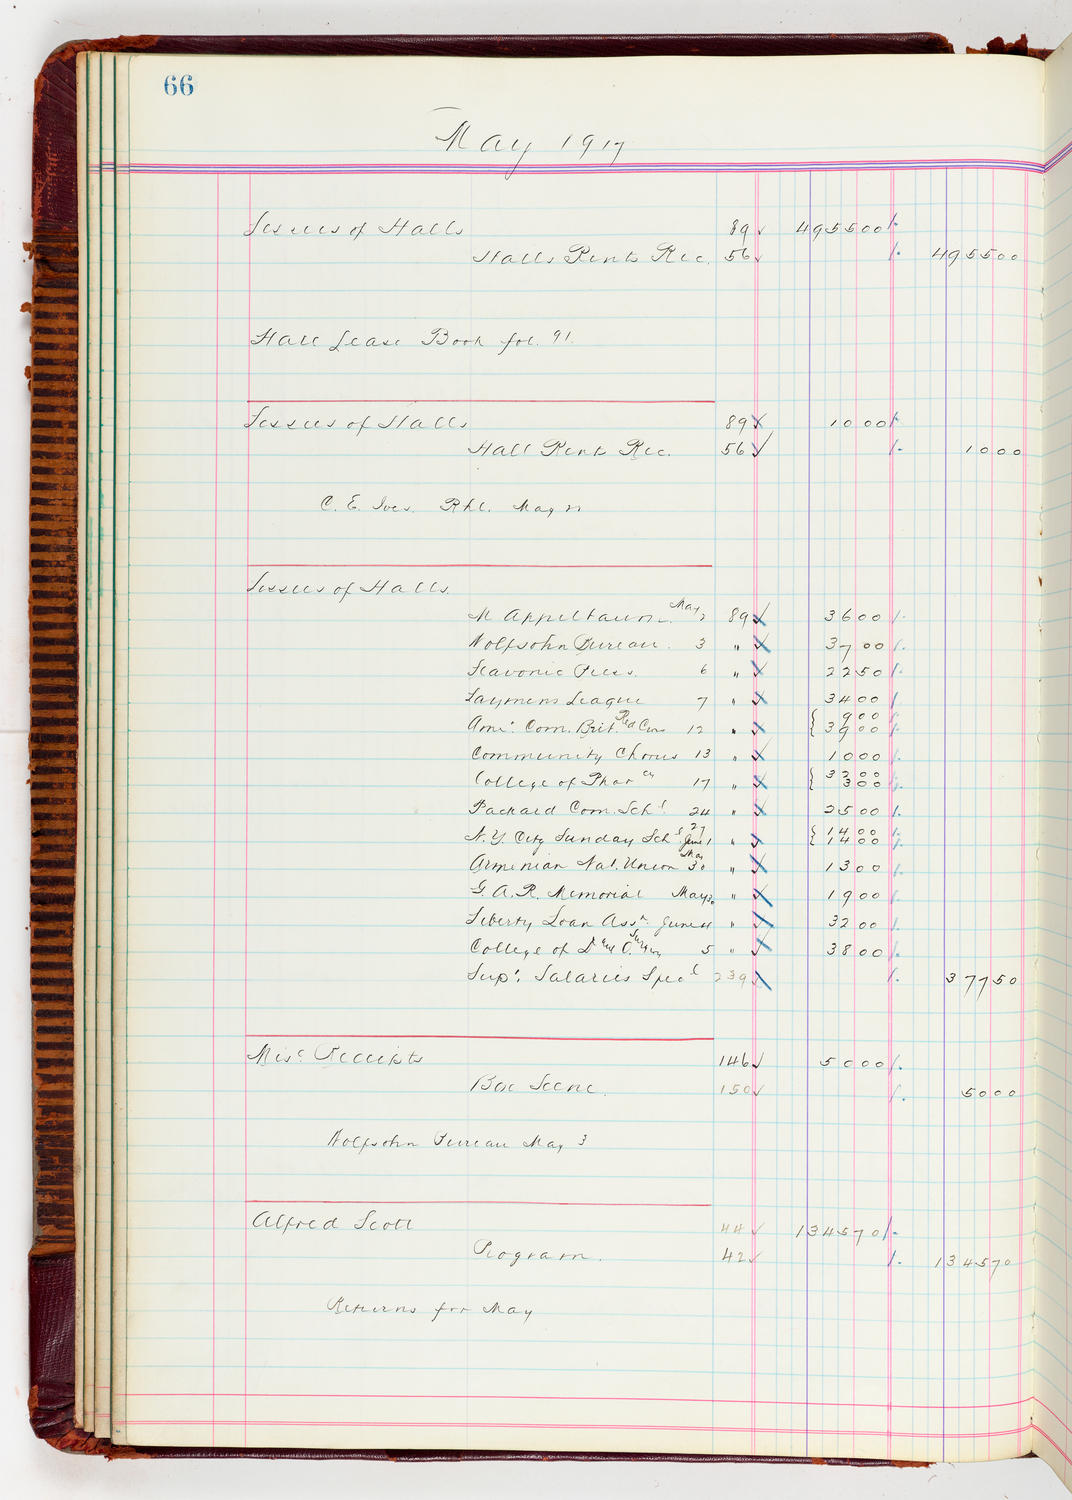 66
May 1917
Lessees of Halls 89 ✓ 4955 00
Halls Rents Rec. 56 ✓ 4955 00
Hall Lease Book fol. 91.
Lessees of Halls 89 10 00
Hall Rents Rec. 56 10 00
C. E. Ives. Rhl. May 21
Lessees of Halls.
M Appeltawn. May 2 89 36 00
Wolfsohn Bureau. 3 " 37 00
Slavonic Press. 6 " 22 50
Laymens League 7 " 34 00
Amr. Com. Brit. Red Cross 12 " { 9 00
39 00
Community Chorus 13 " 10 00
College of Pharcy 17 " { 32 00
3 00
Packard Com. Schl 24 " 25 00
N. Y. City Sunday Schls 27 June 1 " { 14 00
14 00
Armenian Nat. Union May 30 " 13 00
G. A. R. Memorial May 30 " 19 00
Liberty Loan Assn. June 4 " 32 00
College of D and O. Surgery 5 " 38 00
Supt. Salaries Specl 239 377 50
Misc. Receipts 146 ✓ 50 00
Box Scene. 150 ✓ 50 00
Wolfsohn Bureau May 3
Alfred Scott 44 ✓ 1345 70
Program. 42 ✓ 1345 70
Returns for May